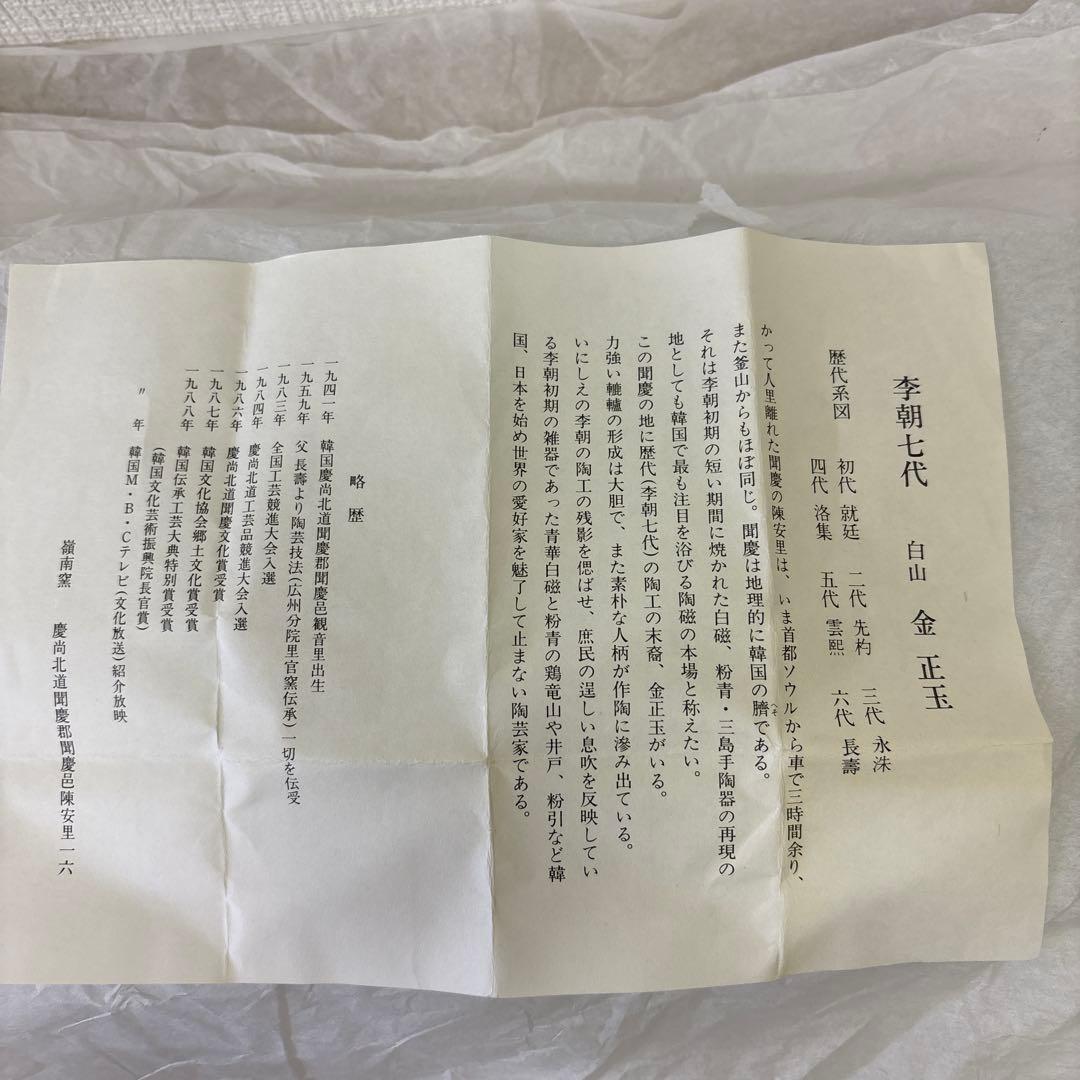 李朝七代　白山　金正玉
歴代系図　初代 就廷　二代 先杓　三代 永洙
四代 洛集　五代 雲煕　六代 長壽
かって人里離れた聞慶の陳安里は、いま首都ソウルから車で三時間余り、
また釜山からもほぼ同じ。聞慶は地理的に韓国の臍である。
へそ
それは李朝初期の短い期間に焼かれた白磁、粉青・三島手陶器の再現の
地としても韓国で最も注目を浴びる陶磁の本場と称えたい。
この聞慶の地に歴代(李朝七代)の陶工の末裔、金正玉がいる。
力強い轆轤の形成は大胆で、また素朴な人柄が作陶に滲み出ている。
いにしえの李朝の陶工の残影を偲ばせ、庶民の逞しい息吹を反映してい
る李朝初期の雑器であった青華白磁と粉青の鶏竜山や井戸、粉引など韓
国、日本を始め世界の愛好家を魅了して止まない陶芸家である。
略歴
一九四一年　韓国慶尚北道聞慶郡聞慶邑観音里出生
一九五九年　父 長壽より陶芸技法(広州分院里官窯伝承)一切を伝受
一九八三年　全国工芸競進大会入選
一九八四年　慶尚北道工芸品競進大会入選
一九八六年　慶尚北道聞慶文化賞受賞
一九八七年　韓国文化協会郷土文化賞受賞
一九八八年　韓国伝承工芸大典特別賞受賞
(韓国文化芸術振興院長官賞)
〃 年　韓国M・B・Cテレビ(文化放送)紹介放映
嶺南窯　慶尚北道聞慶郡聞慶邑陳安里一六